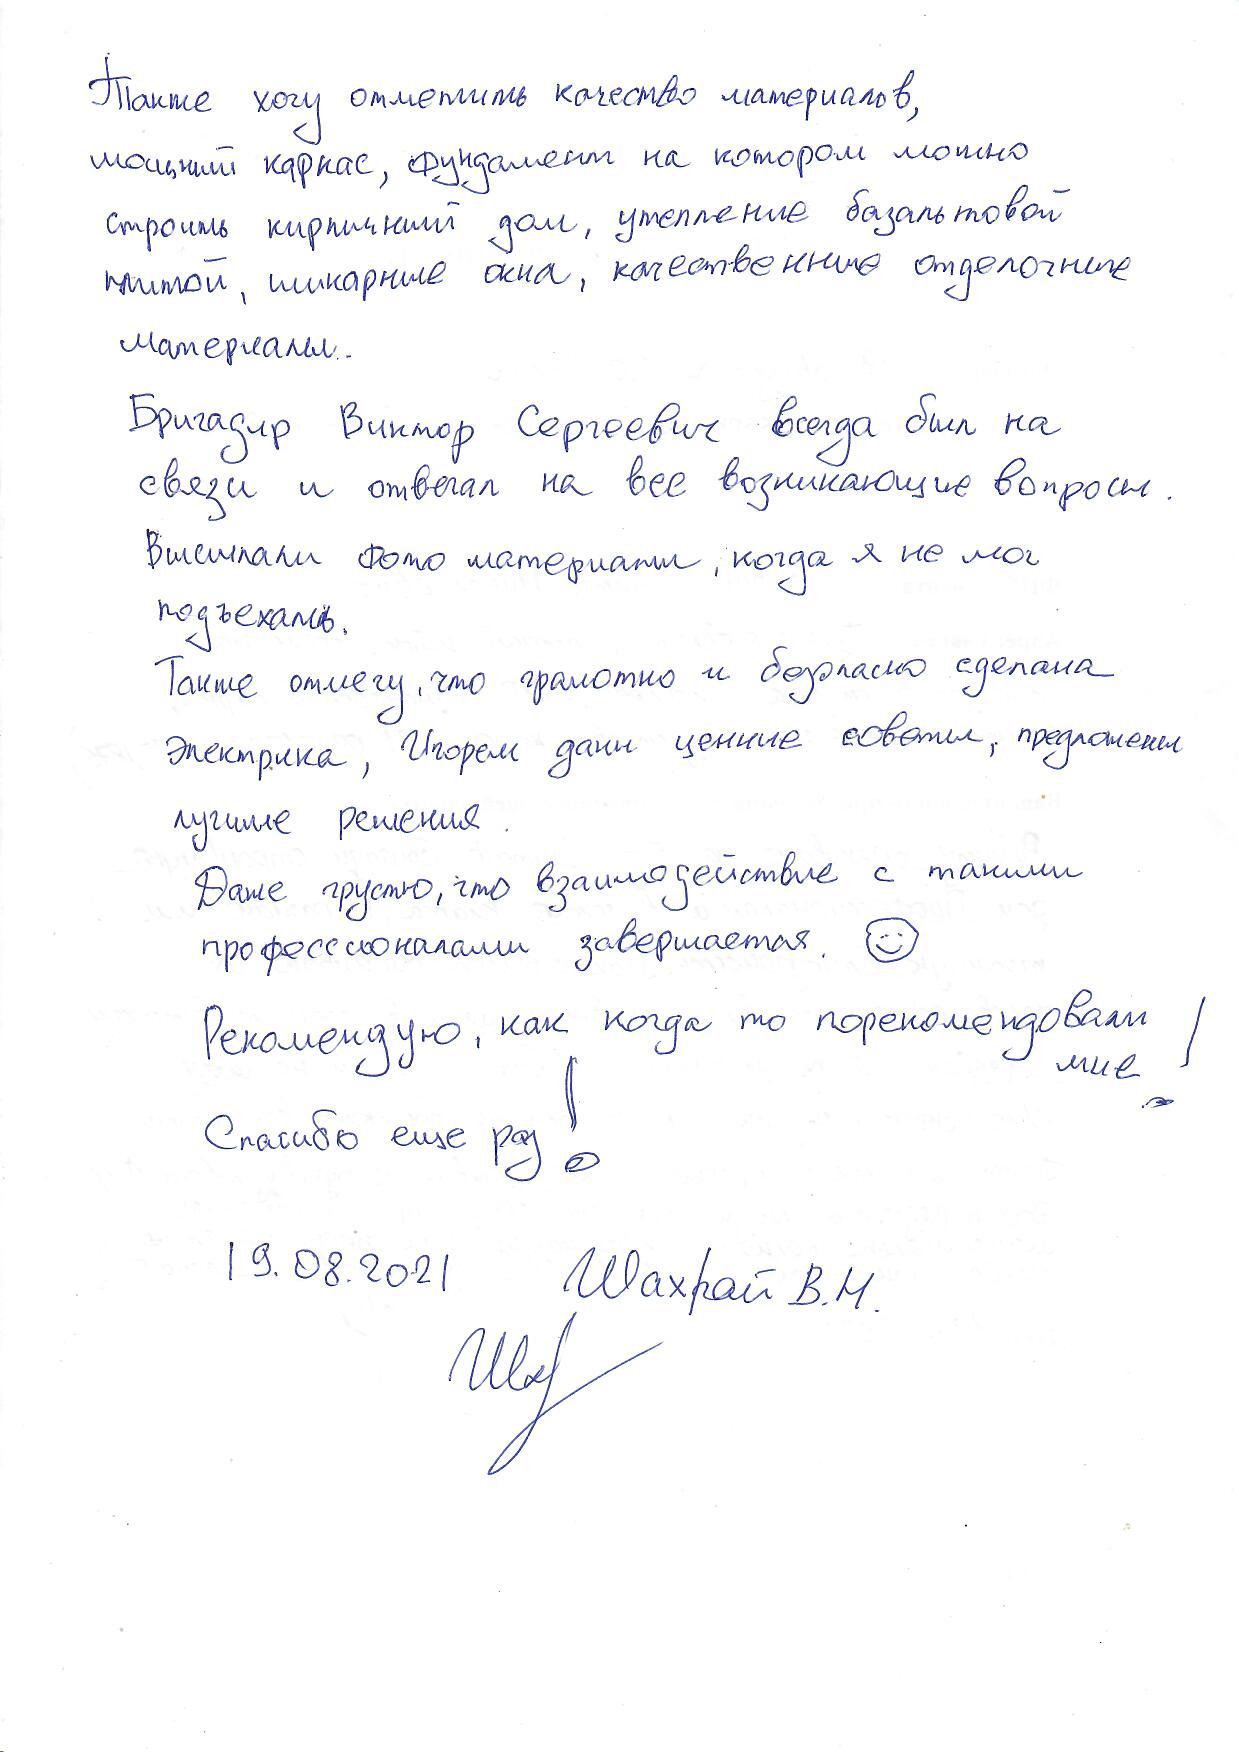 Также хочу отметить качество материалов,
мощный каркас, фундамент на котором можно
строить кирпичный дом, утепление базальтовой
плитой, шикарные окна, качественные отделочные
материалы.
Бригадир Виктор Сергеевич всегда был на
связи и отвечал на все возникающие вопросы.
Высылали фото материалы, когда я не мог
подъехать.
Также отмечу, что грамотно и безопасно сделана
электрика, Игорем даны ценные советы, предложены
лучшие решения.
Даже грустно, что взаимодействие с такими
профессионалами завершается.
Рекомендую, как когда то порекомендовали
мне!
Спасибо еще раз!
19.08.2021 Шахрай В.Н.